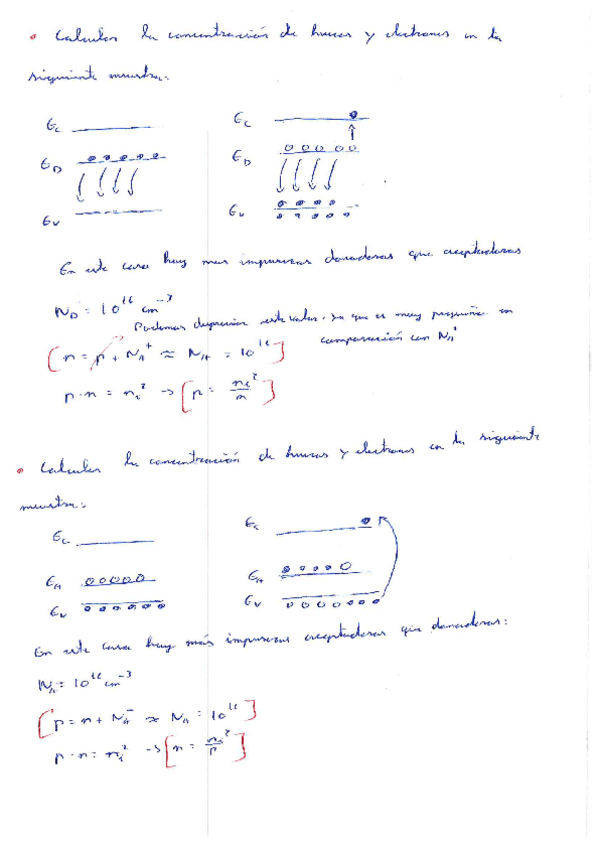 • Calcular la concentración de huecos y electrones en la
siguiente muestra:
Ec Ec
ED ED
Ev Ev
En este caso hay mas impurezas donadoras que aceptadoras
ND = 10^16 cm^-3
Podemos despreciar este valor, ya que es muy pequeño en
comparación con NA^+
[n = p + NA^+ ≈ NA = 10^16]
p·n = ni^2 → [p = ni^2/n]
• Calcular la concentración de huecos y electrones en la siguiente
muestra:
Ec Ec
EA EA
Ev Ev
En este caso hay más impurezas aceptadoras que donadoras:
NA = 10^16 cm^-3
[p = n + NA^- ≈ NA = 10^16]
p·n = ni^2 → [n = ni^2/p]